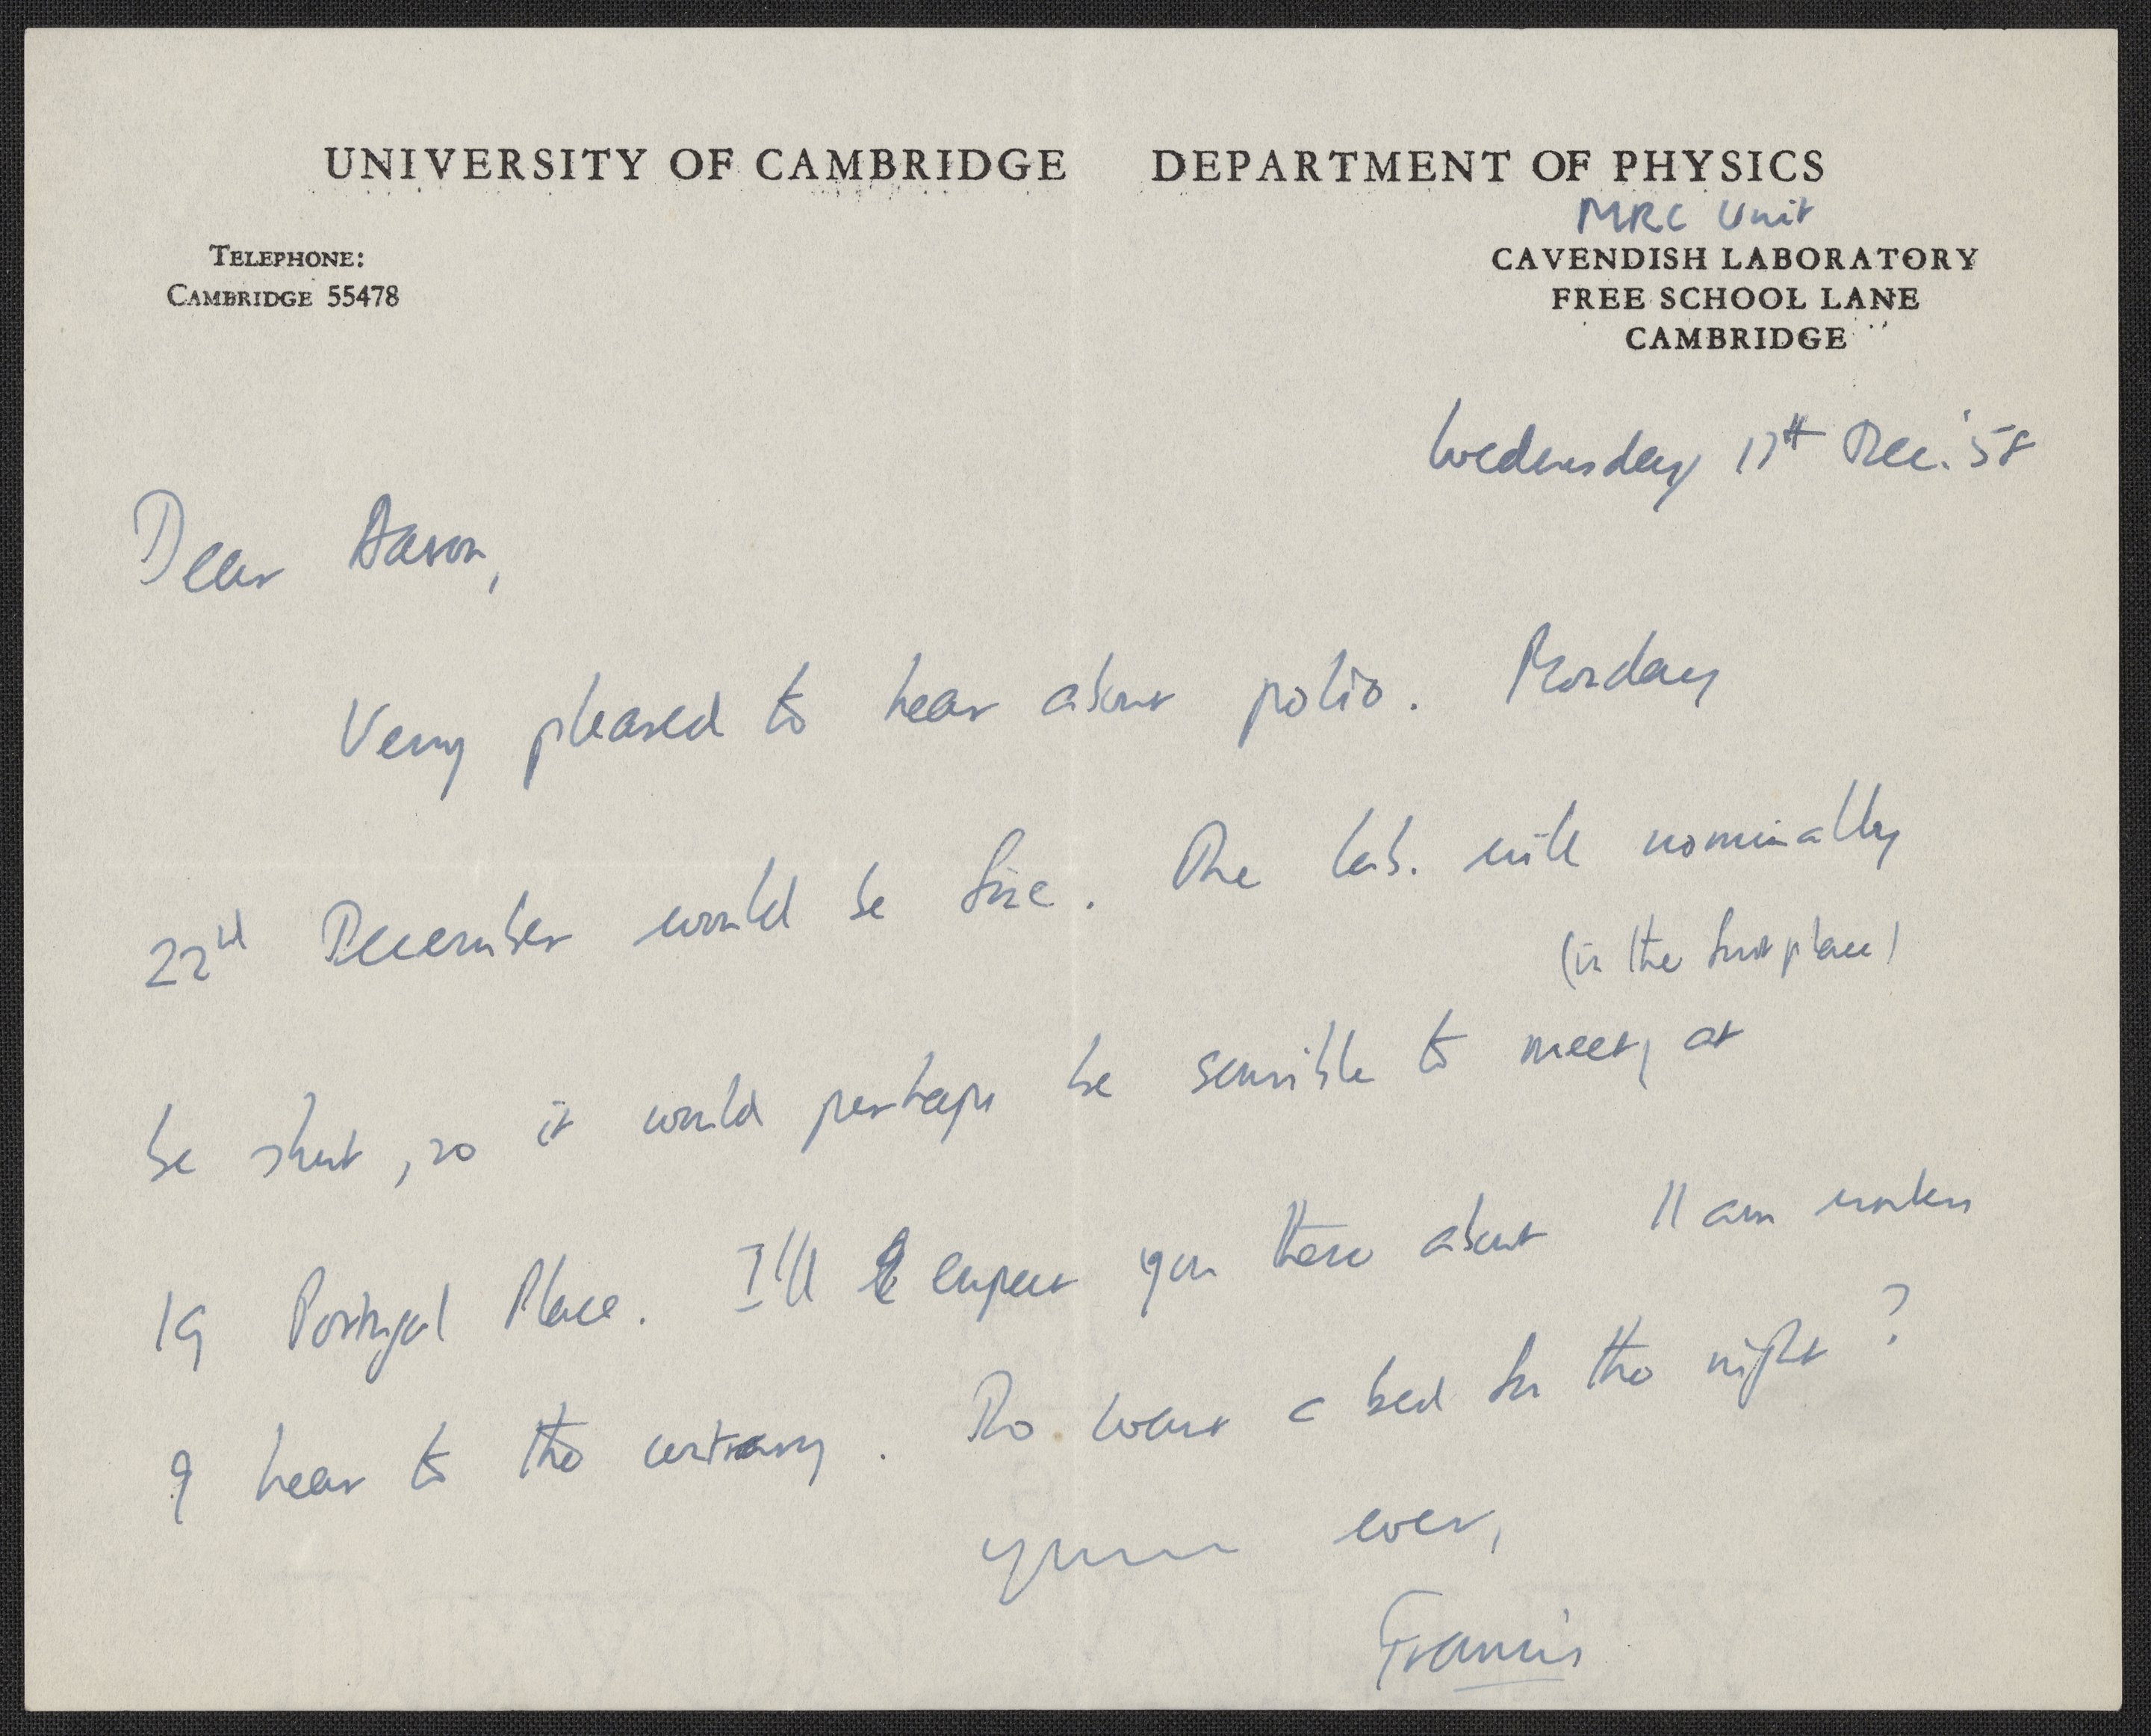 UNIVERSITY OF CAMBRIDGE DEPARTMENT OF PHYSICS
MRC Unit
TELEPHONE:
CAMBRIDGE 55478
CAVENDISH LABORATORY
FREE SCHOOL LANE
CAMBRIDGE
Wednesday 17th Dec. '58
Dear Aaron,
Very pleased to hear about polio. Monday
22nd December would be fine. The lab. will nominally
(in the first place)
be shut, so it would perhaps be sensible to meet, at
19 Portugal Place. I'll expect you there about 11 am unless
I hear to the contrary. Do want a bed for the night?
yours ever,
Francis